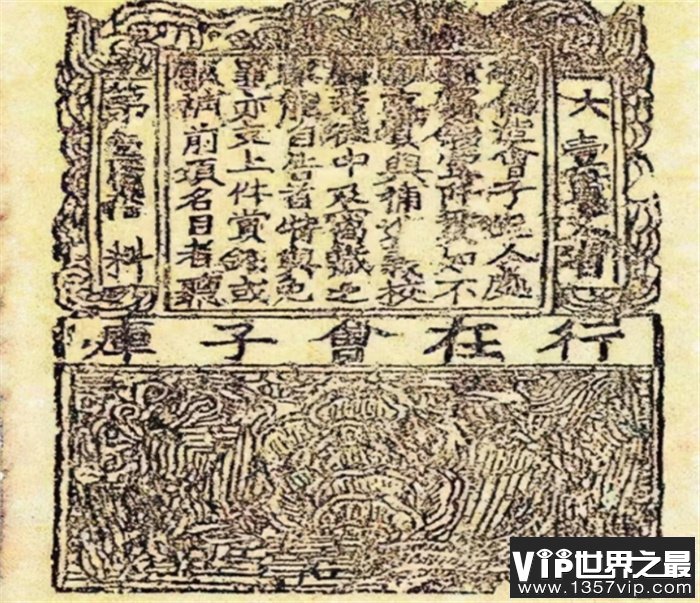 大壹貫文省
造會子犯人處
如不
賞與補進義校
徒中及窩藏之
能自告首特與免
罪亦支上件賞錢或
願補前項名目者聽
第料
行在會子庫
VIP世界之最
www.1357vip.com